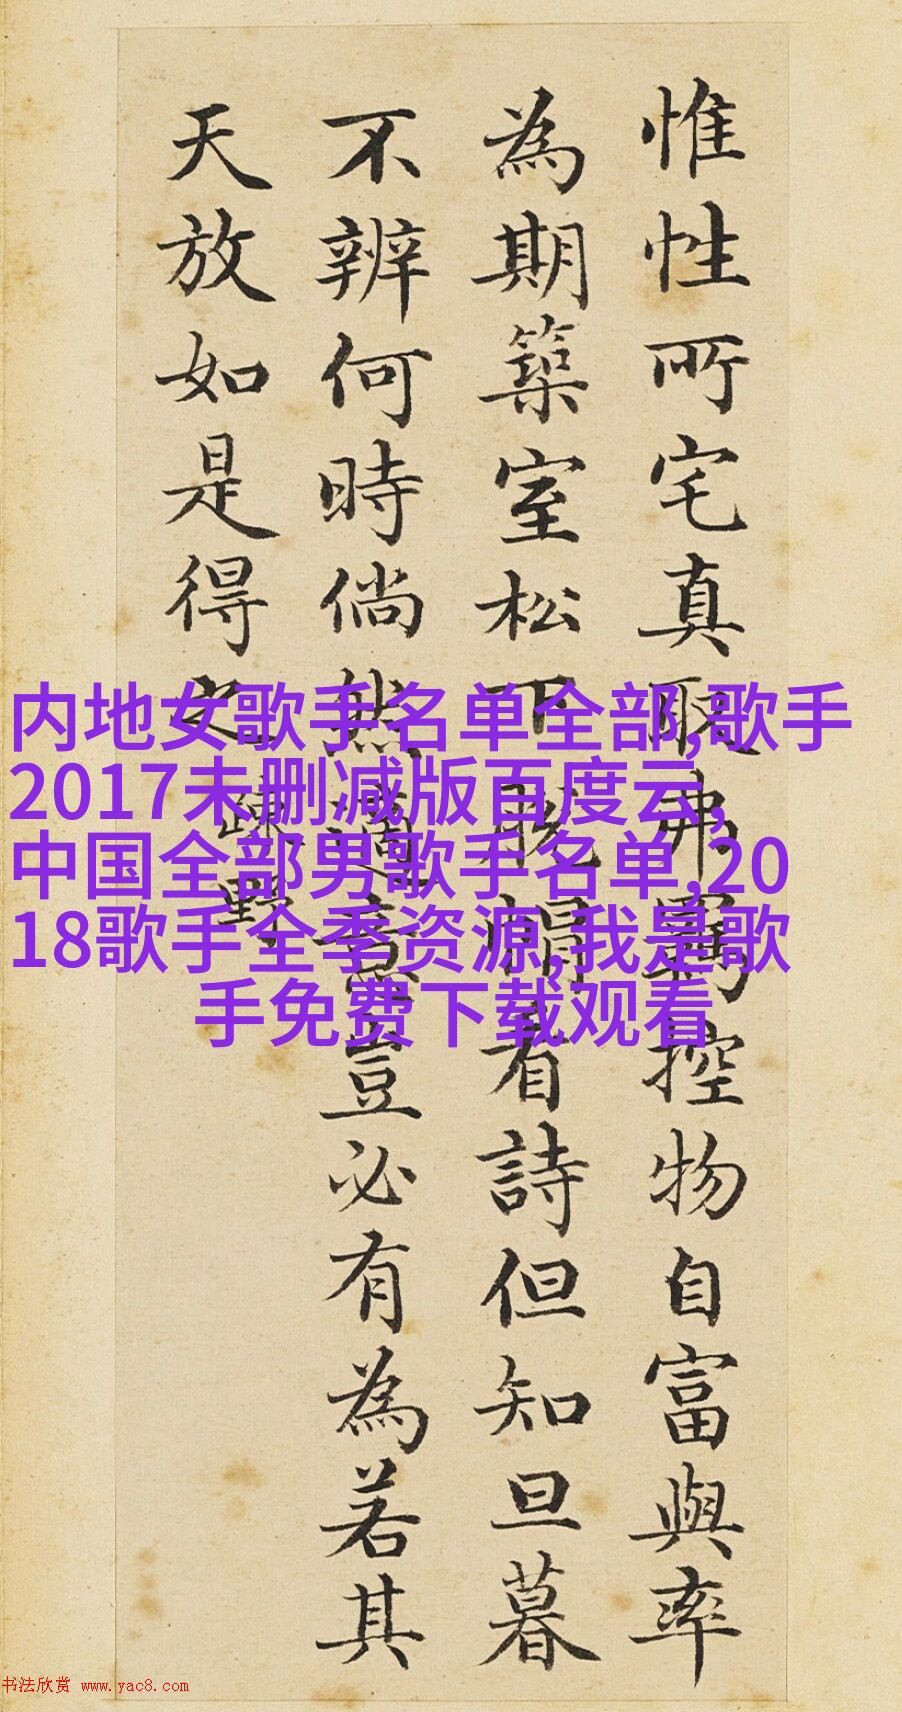 惟性所宅真取弗羈控物自富與率
為期築室松下脱帽看詩但知旦暮
不辨何時倘然適意豈必有為若其
天放如是得之
疎野
内地女歌手名单全部,歌手
2017未删减版百度云,
中国全部男歌手名单,20
18歌手全季资源,我是歌
手免费下载观看
书法欣赏 www.yac8.com